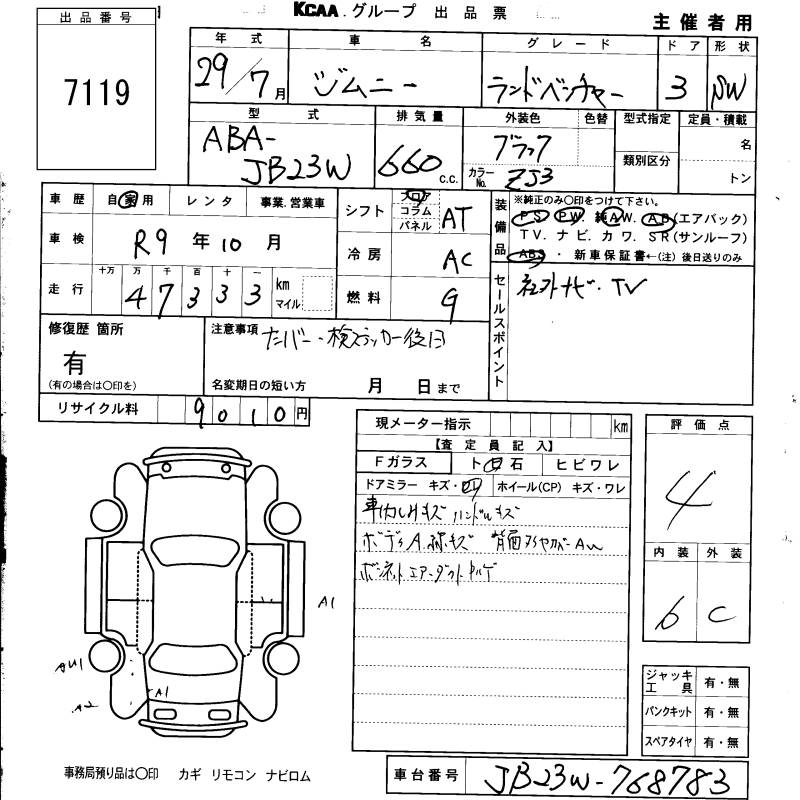 KCAA.グループ 出品票
主催者用
出品番号
7119
年式 車名 グレード ドア 形状
29/7月 ジムニー ランドベンチャー 3 SW
型式 排気量 外装色 色替 型式指定 定員・積載
ABA-JB23W 660 c.c. ブラック
カラーNo. ZJ3 類別区分 名
トン
車歴 自家用 レンタ 事業.営業車
車検 R9年10月
走行 十万 万 千 百 十 一
47333 km マイル
シフト フロア コラム パネル AT
冷房 AC
燃料 G
装備品 ※純正のみ○印をつけて下さい。
PS PW 純AW. AB(エアバック)
TV. ナビ. カワ. SR(サンルーフ)
ABS ・ 新車保証書←(注)後日送りのみ
セールスポイント 社外ナビ・TV
修復歴 箇所
有
(有の場合は○印を)
注意事項 ナンバー・検ステッカー後日
名変期日の短い方 月 日まで
リサイクル料 9010円
現メーター指示 km
【査定員記入】
Fガラス ト白石 ヒビワレ
ドアミラー キズ・凹 ホイール(CP) キズ・ワレ
車内しみキズ ハンドルキズ
ボディA.線キズ 背面タイヤカバーAu
ボンネットエアーダクト
評価点
4
内装 外装
6 C
A1
AU1
A2
A1
ジャッキ工具 有・無
パンクキット 有・無
スペアタイヤ 有・無
事務局預り品は○印 カギ リモコン ナビロム
車台番号 JB23W-768783